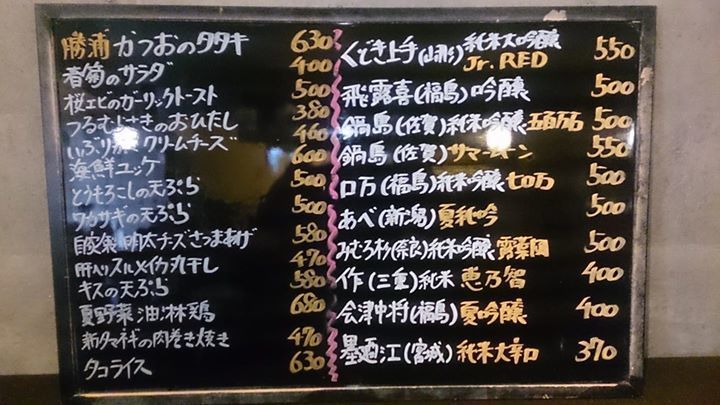 勝浦 かつおのタタキ 630
春菊のサラダ 400
桜エビのガーリックトースト 500
つるむらさきのおひたし 380
いぶり クリームチーズ 460
海鮮ユッケ 600
とうもろこしの天ぷら 500
ワカサギの天ぷら 500
自家製 明太チーズさつまあげ 580
肝入りスルメイカ丸干し 470
キスの天ぷら 580
夏野菜油淋鶏 680
新タマネギの肉巻き焼き 470
タコライス 630
くどき上手(山形)純米大吟醸 Jr. RED 550
飛露喜(福島)吟醸 500
鍋島(佐賀)純米吟醸 五百万石 500
鍋島(佐賀)サマームーン 550
ロ万(福島)純米吟醸 七ロ万 500
あべ(新潟)夏純吟 500
みむろ杉(奈良)純米吟醸 露葉風 500
作(三重)純米 恵乃智 400
会津中将(福島)夏吟醸 400
墨廼江(宮城)純米大辛口 370